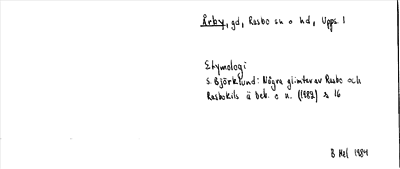 Årby, gd, Rasbo sn o hd, Upps. l
Etymologi
S. Björklund: Några glimtar av Rasbo och
Rasbokils ä beb. o n. (1982) s 16
B Hel 1984